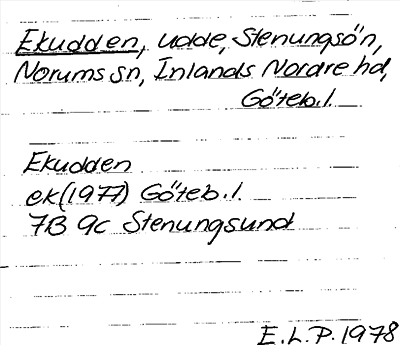 Ekudden, udde, Stenungsön,
Norums sn, Inlands Nordre hd,
Göteb.l.
Ekudden
ek(1977) Göteb.l.
7B 9c Stenungsund
E.L.P. 1978